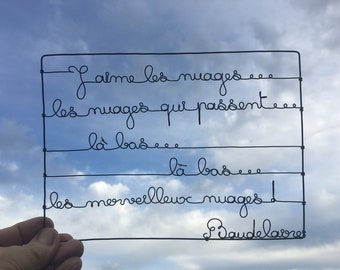 J'aime les nuages...
les nuages qui passent...
là bas...
là bas...
les merveilleux nuages !
Baudelaire